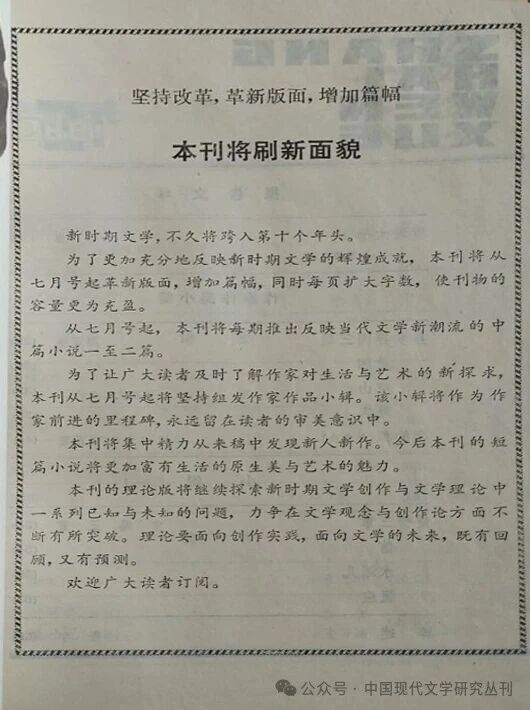 坚持改革,革新版面,增加篇幅
本刊将刷新面貌
新时期文学,不久将跨入第十个年头。
为了更加充分地反映新时期文学的辉煌成就,本刊将从
七月号起革新版面,增加篇幅,同时每页扩大字数,使刊物的
容量更为充盈。
从七月号起,本刊将每期推出反映当代文学新潮流的中
篇小说一至二篇。
为了让广大读者及时了解作家对生活与艺术的新探求,
本刊从七月号起将坚持组发作家作品小辑。该小辑将作为作
家前进的里程碑,永远留在读者的审美意识中。
本刊将集中精力从来稿中发现新人新作。今后本刊的短
篇小说将更加富有生活的原生美与艺术的魅力。
本刊的理论版将继续探索新时期文学创作与文学理论中
一系列已知与未知的问题,力争在文学观念与创作论方面不
断有所突破。理论要面向创作实践,面向文学的未来,既有回
顾,又有预测。
欢迎广大读者订阅。
公众号·中国现代文学研究丛刊